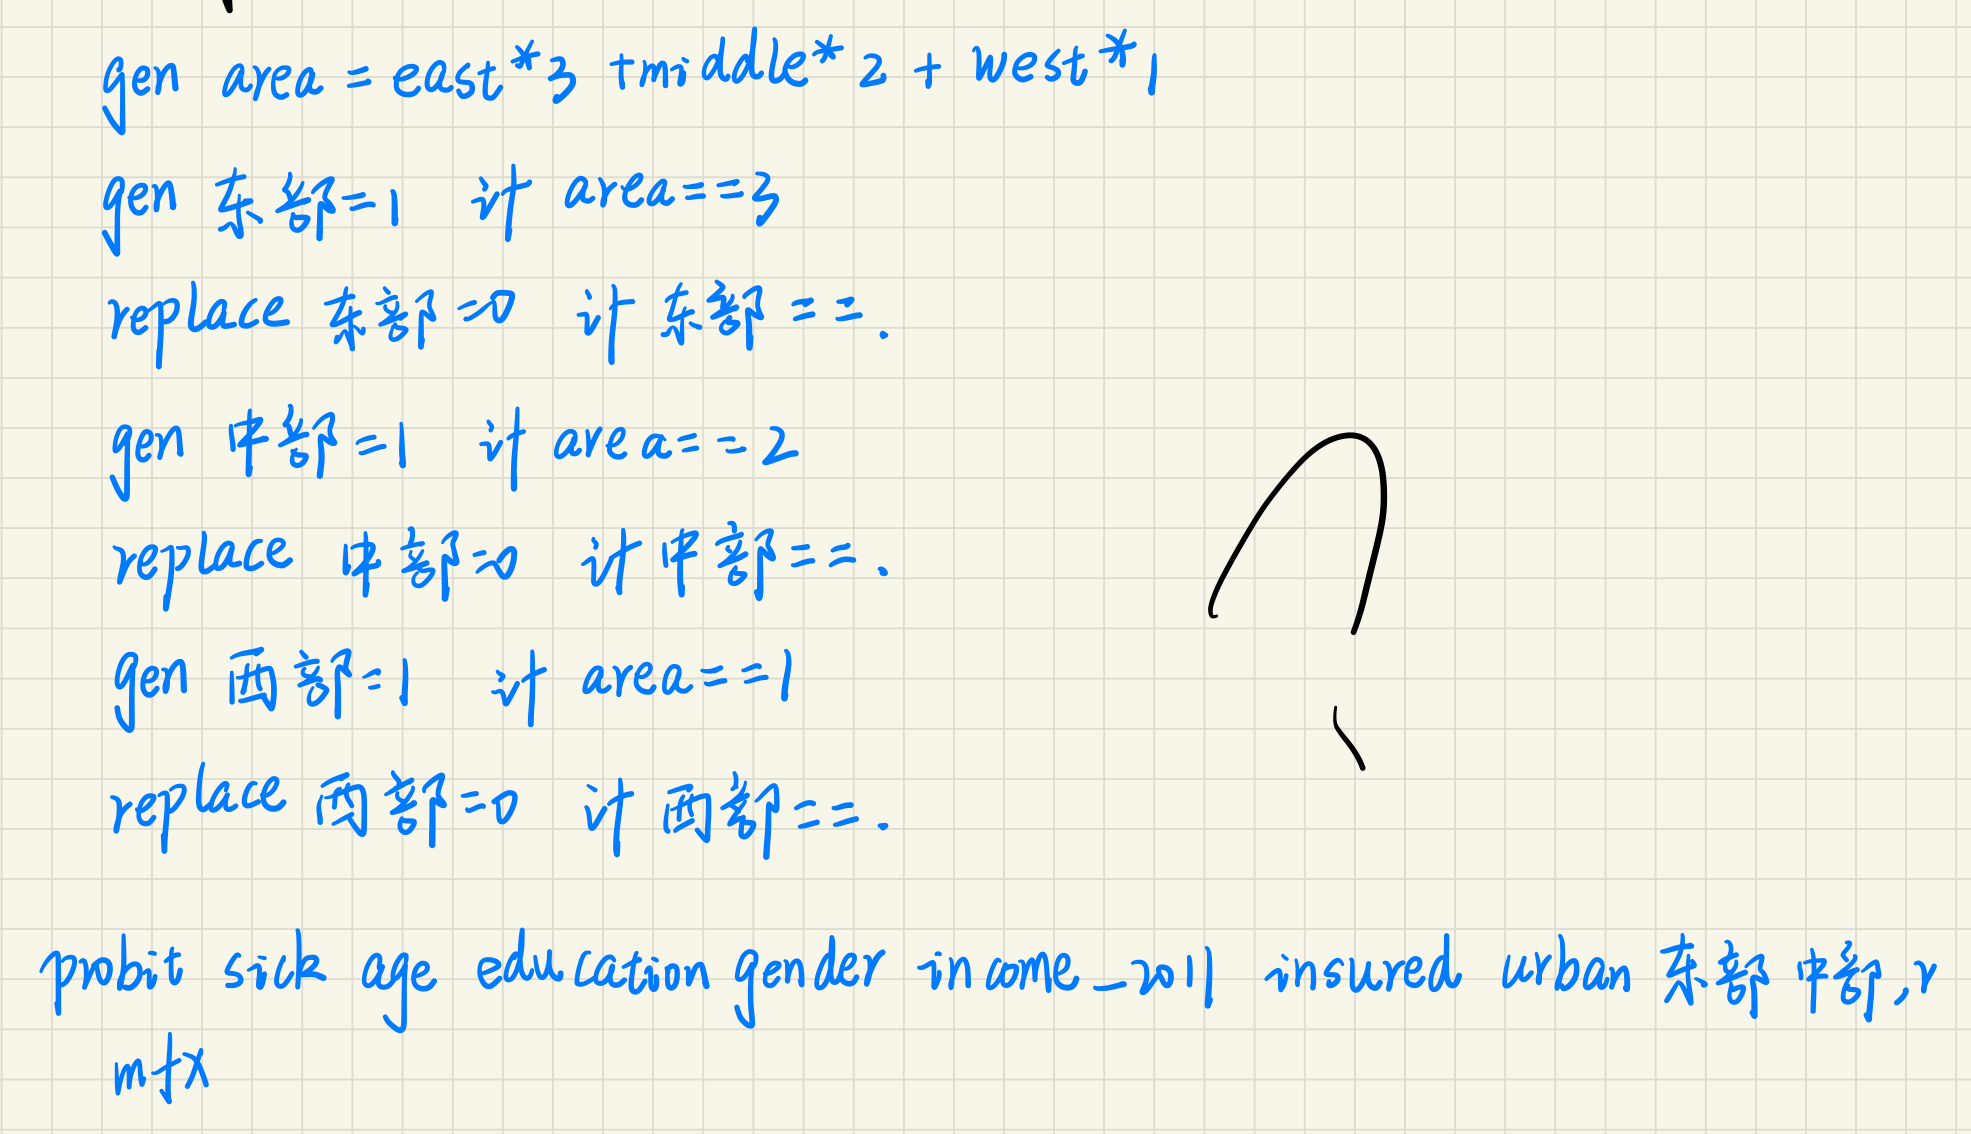 gen area = east*3 +middle*2 + west*1
gen 东部=1 计 area==3
replace 东部=0 计 东部==.
gen 中部=1 计 area==2
replace 中部=0 计 中部==.
gen 西部=1 计 area==1
replace 西部=0 计 西部==.
probit sick age education gender income_2011 insured urban 东部 中部,r
mfx